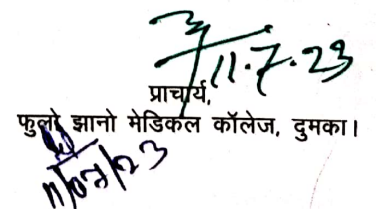 11.7.23
प्राचार्य,
फुलो झानो मेडिकल कॉलेज, दुमका।
11/07/23